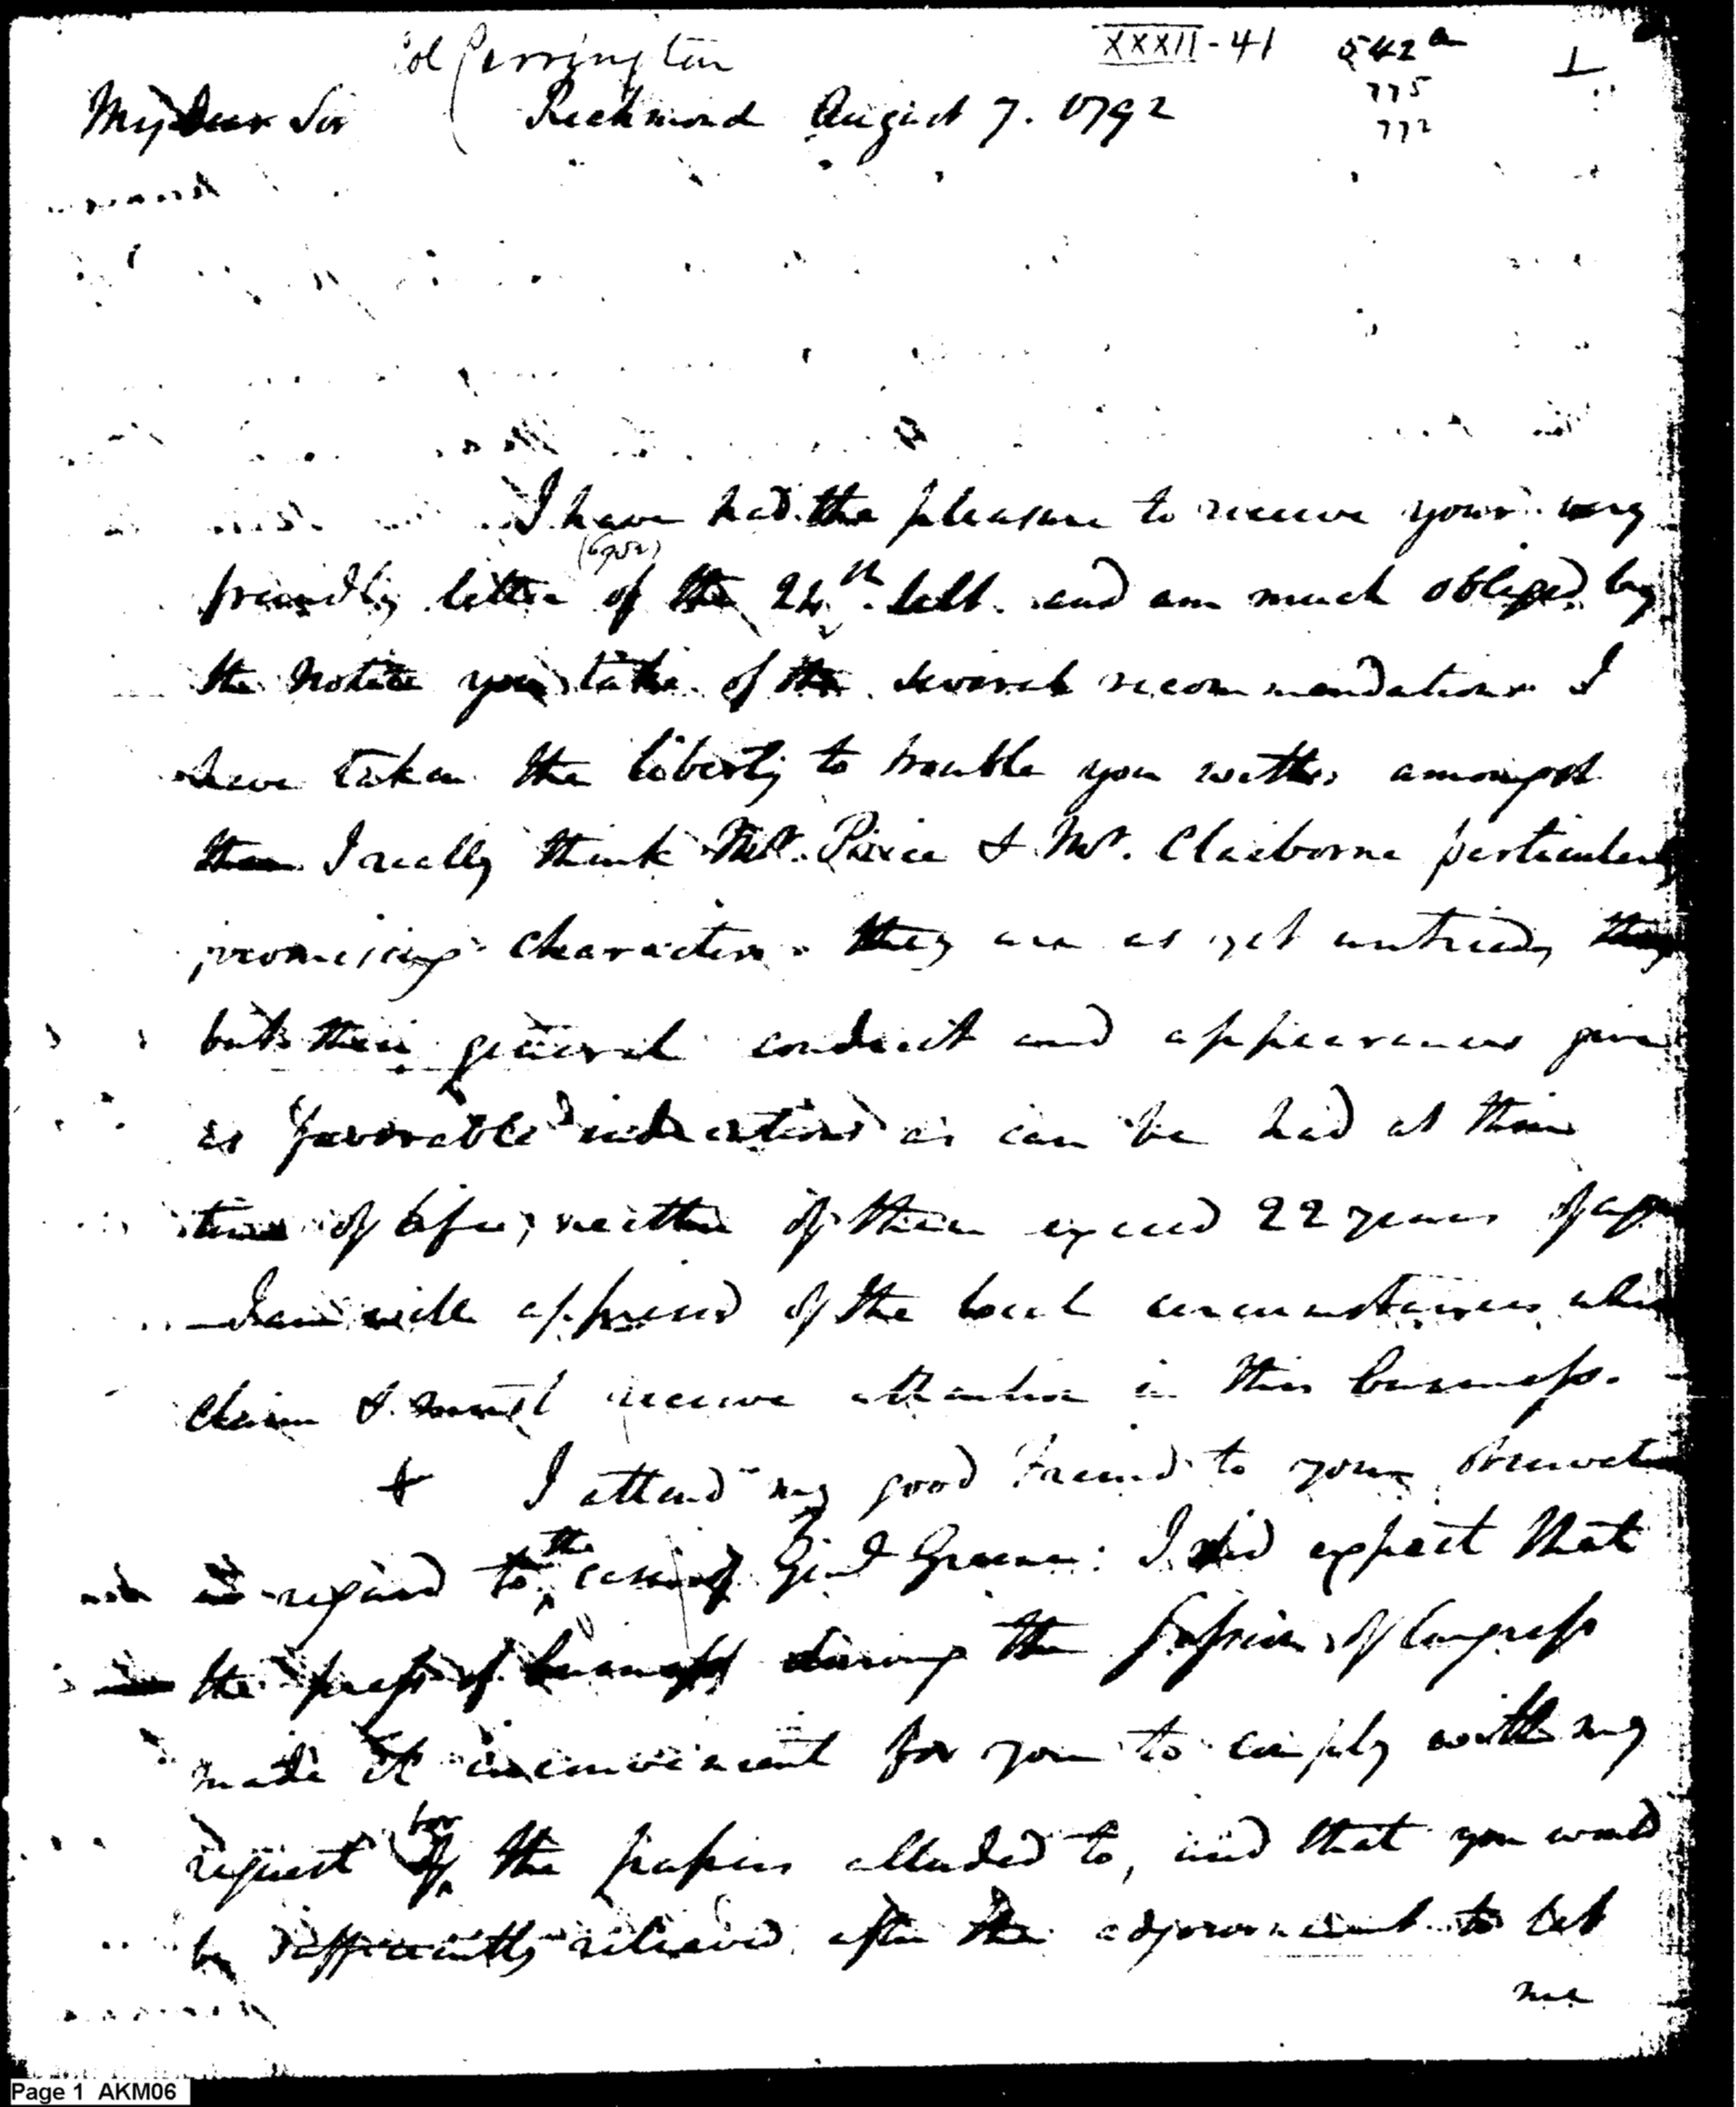 Col Carrington
XXXII - 41 542 a 1
775
772
My Dear Sir Richmond August 7. 1792
I have had the pleasure to receive your very
friendly letter of the 24th. Ult. and am much obliged by
the notice you take of the several recommendations I
have taken the liberty to trouble you with, amongst
them I really think Mr. Peirce & Mr. Claiborne particularly
promising characters. they are as yet untried,
but their general conduct and appearances give
as favorable indications as can be had at their
time of life, neither of them exceed 22 years of age
I am well apprised of the local circumstances which
claim & must receive attention in this business.
+ I attend my good Friend to your observations
in regard to the case of Genl Greene: I did expect that
the press of business during the Session of Congress
made it inconvenient for you to comply with my
request for the papers alluded to, and that you would
be sufficiently relieved after the adjournment to let
me
Page 1 AKM06